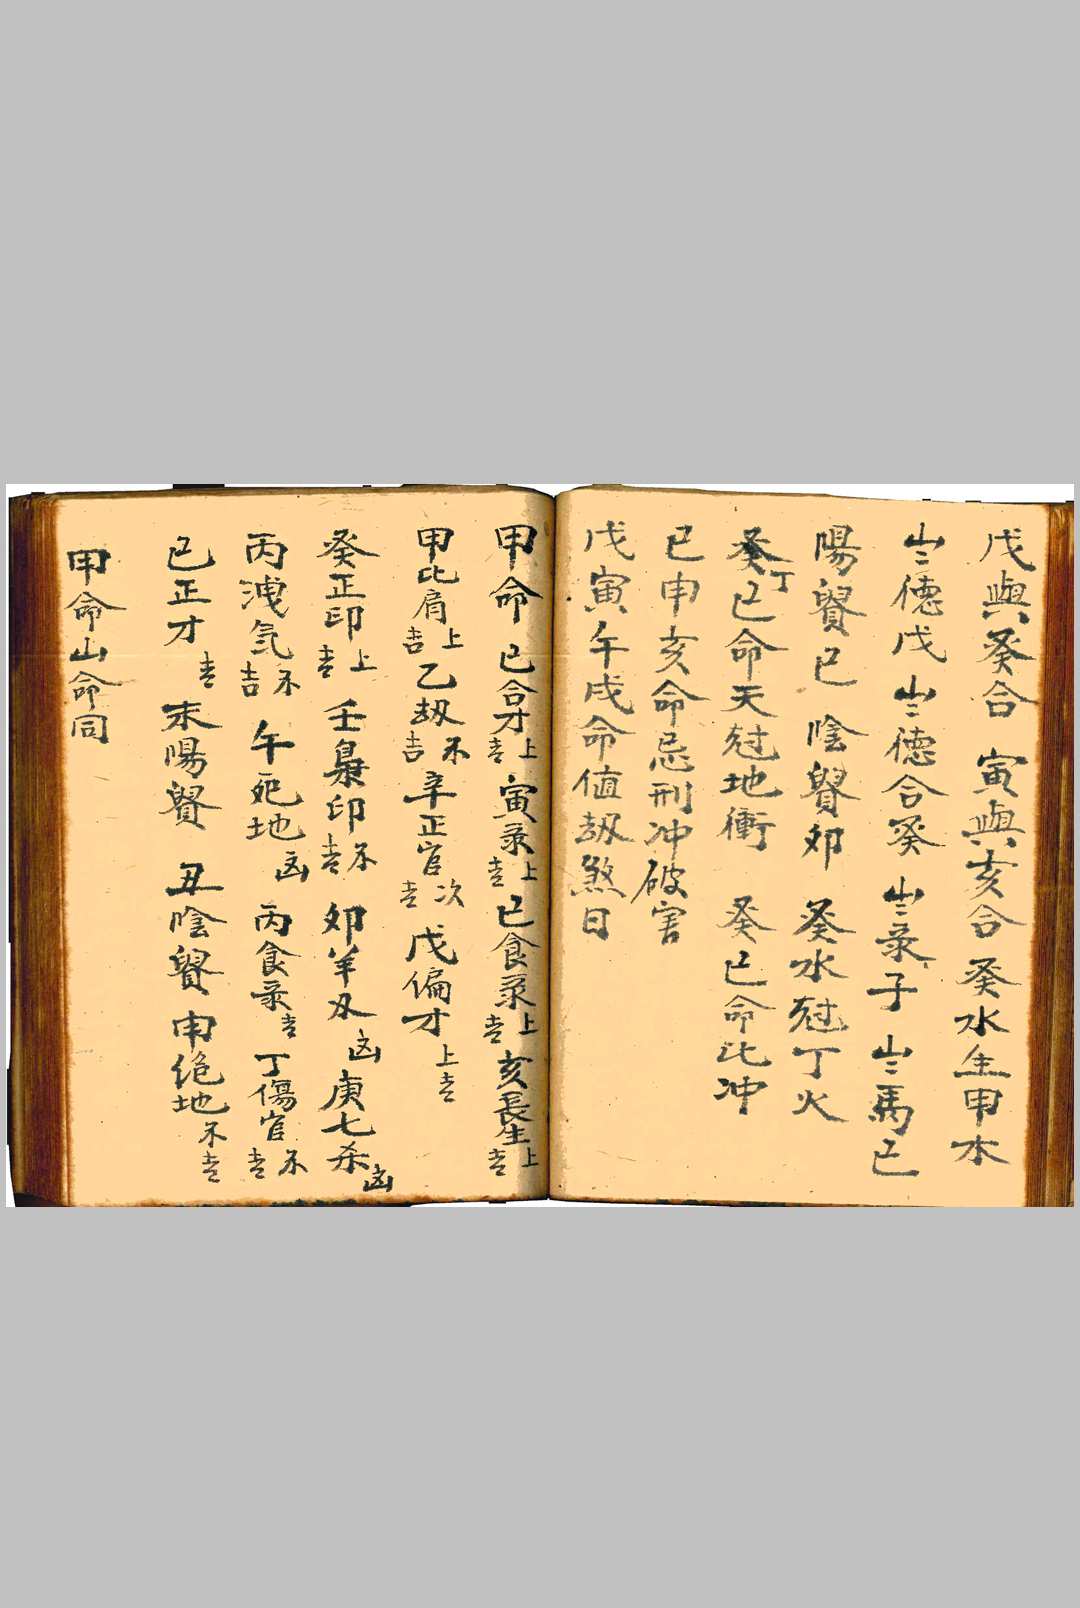 戊與癸合 寅與亥合 癸水生甲木
岀德戊 岀德合癸 岀彔子 岀馬巳
陽貴巳 陰貴卯 癸水尅丁火
癸丁巳命天尅地衝 癸巳命比冲
巳申亥命忌刑冲破害
戊寅午戌命值刼煞日
甲命 己合才上吉 寅彔上吉 巳食彔上吉 亥長生上吉
甲比肩上吉 乙刼不吉 辛正官次吉 戊偏才上吉
癸正印上吉 壬梟印不吉 卯羊刄凶 庚七杀凶
丙洩気不吉 午死地凶 丙食彔吉 丁傷官不吉
己正才吉 未陽貴 丑陰貴 申绝地不吉
甲命山命同